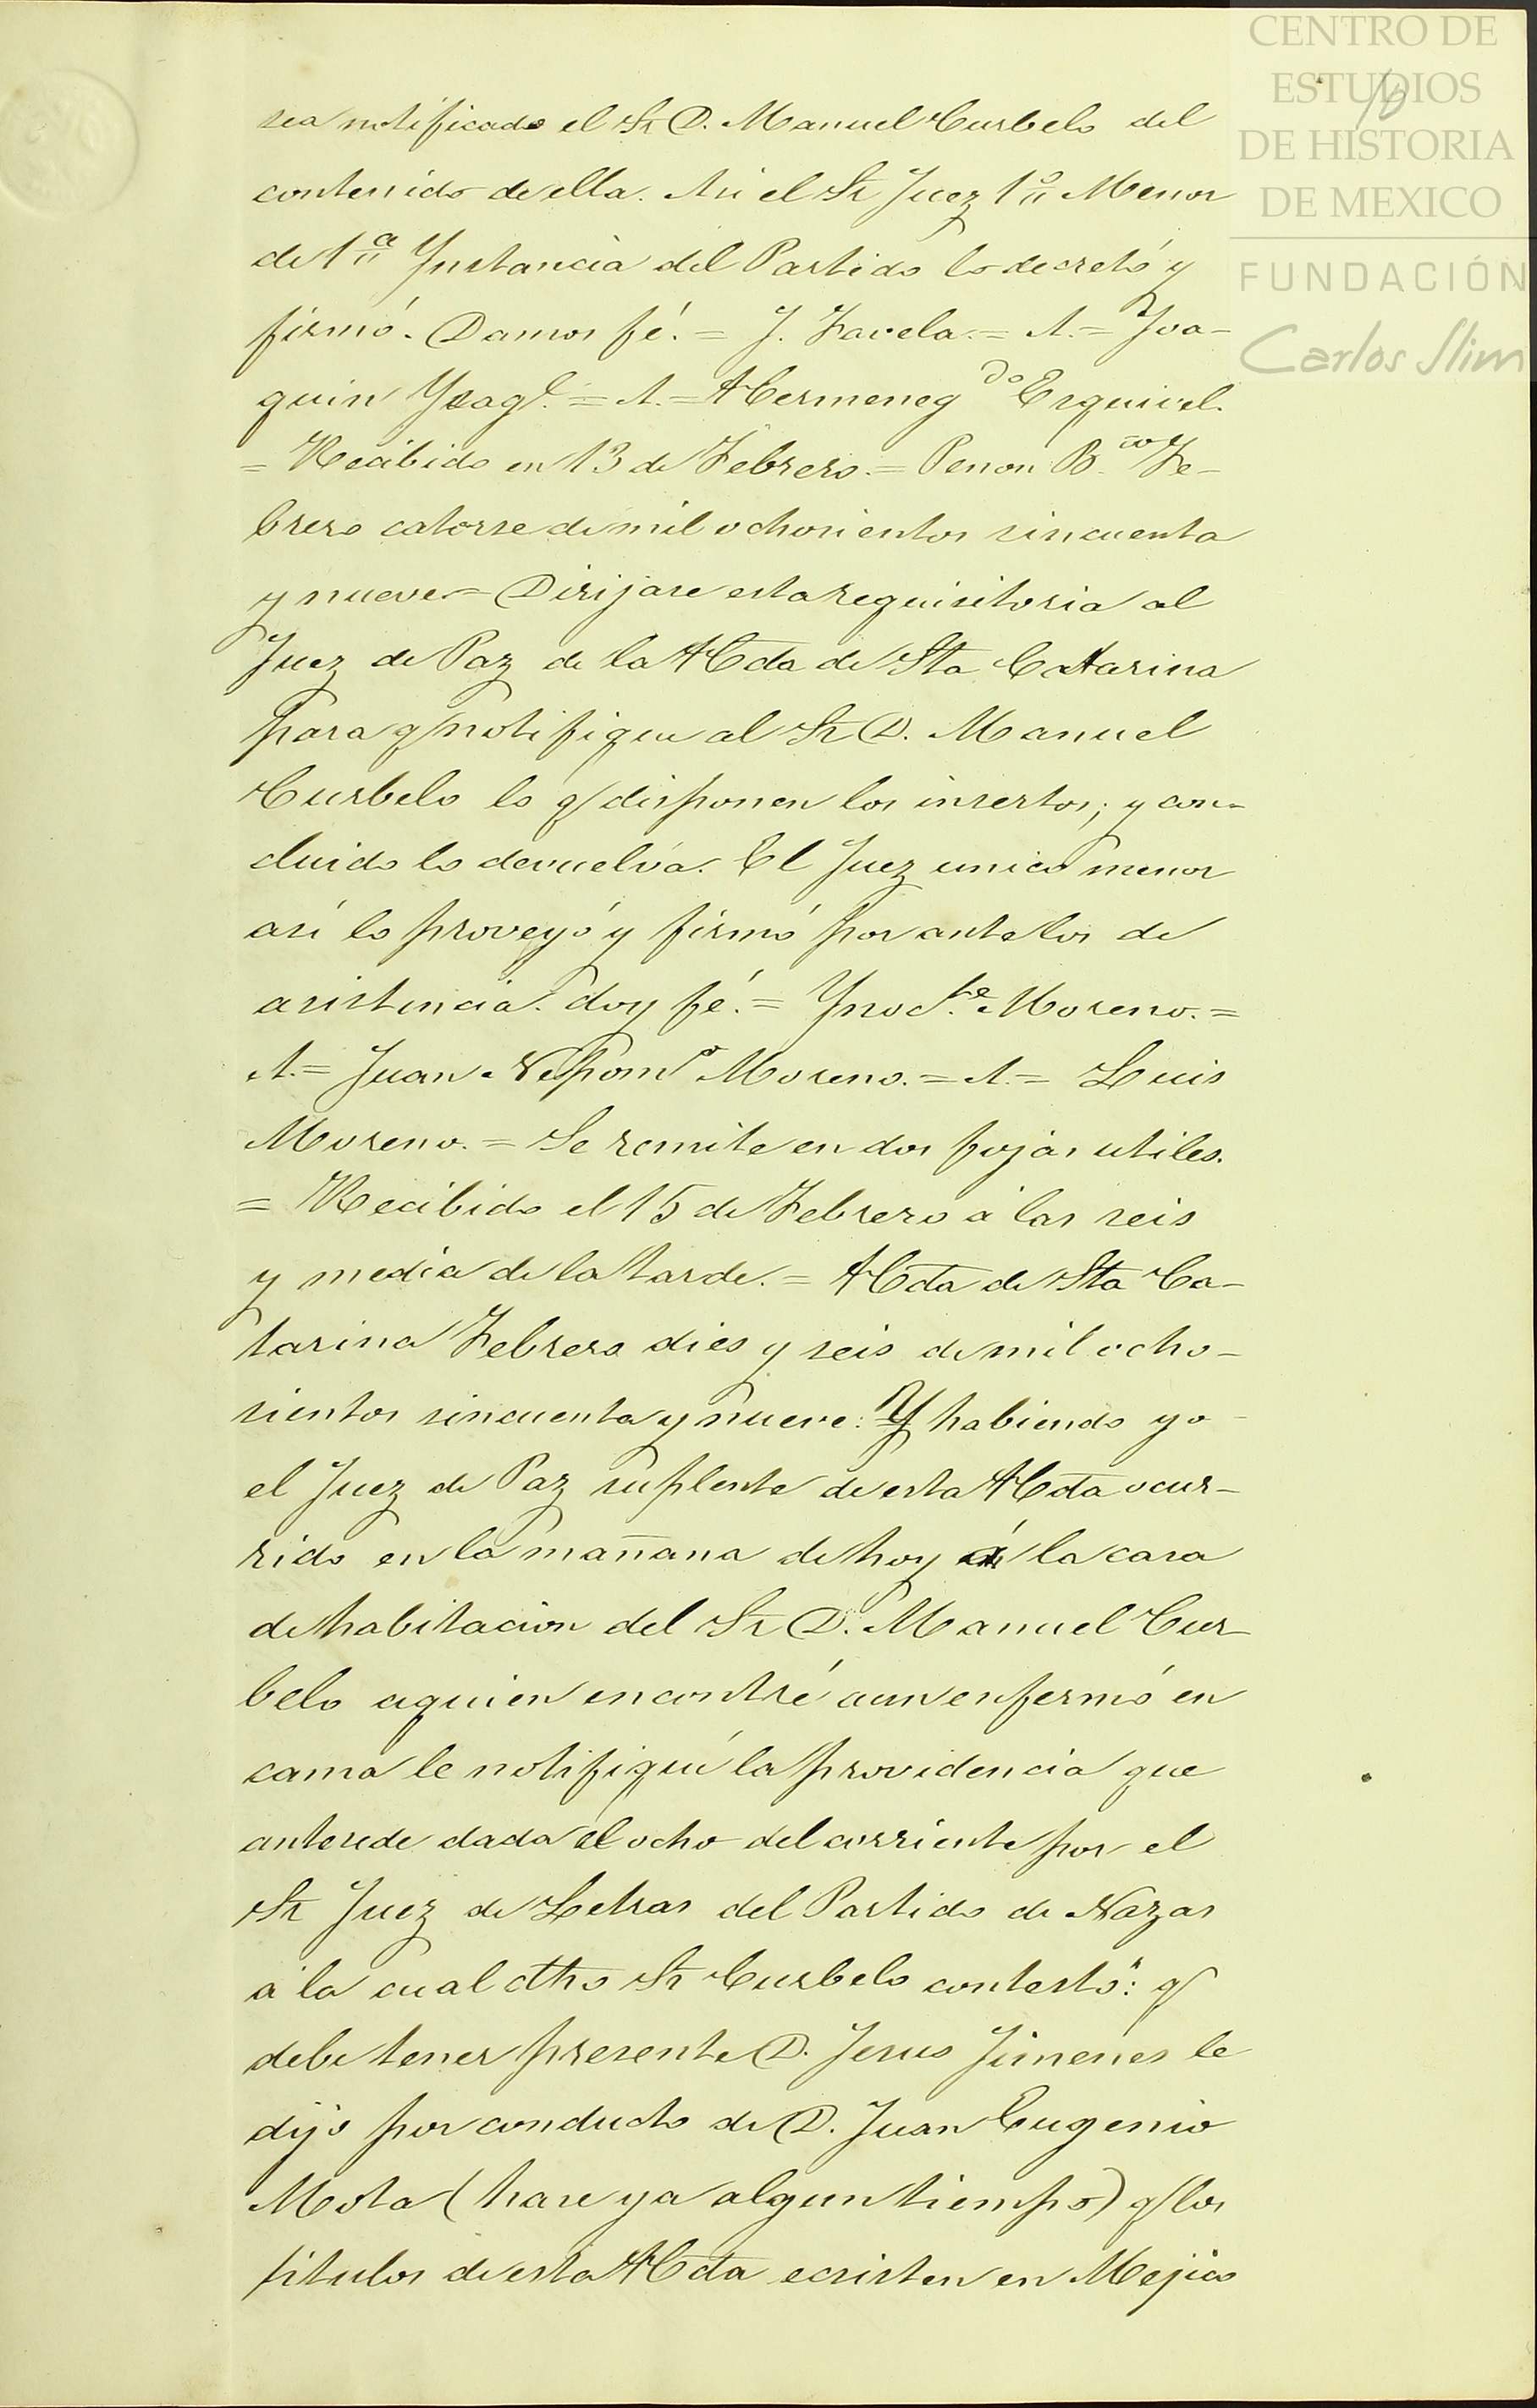 CENTRO DE
ESTUDIOS
DE HISTORIA
DE MEXICO
FUNDACIÓN
Carlos Slim
16
sea notificado el Sr D. Manuel Curbelo del
contenido de ella. Asi el Sr Juez 1º Menor
de 1ª Ynstancia del Partido lo decretó y
firmó. Damos fé. = J. Favela. = A. = Joa-
quin Ysagl. = A. = Hermenegdo Esquivel.
= Recibido en 13 de Febrero. = Penon B.co Fe-
brero catorse de mil ochosientos sincuenta
y nueve = Dirijase esta requisitoria al
Juez de Paz de la Hda de Sta Catarina
para q notifique al Sr D. Manuel
Curbelo lo q disponen los insertos; y con-
cluido lo devuelva. El Juez unico menor
asi lo proveyó y firmó por ante los de
asistencia. doy fé. = Ynocte. Moreno. =
A. = Juan Nepomo Moreno. = A. = Luis
Moreno. = Se remite en dos fojas utiles.
= Recibido el 15 de Febrero á las seis
y media de la tarde. = Hda de Sta Ca-
tarina Febrero dies y seis de mil ocho-
sientos sincuenta y nueve. Y habiendo yo
el Juez de Paz suplente de esta Hda ocur-
rido en la mañana de hoy á la casa
de habitacion del Sr D. Manuel Cur-
belo aquien encontré aun enfermó en
cama le notifiqué la providencia que
antesede dada el ocho del corriente por el
Sr Juez de Letras del Partido de Nazas
á la cual dho Sr Curbelo contestó: q
debe tener presente D. Jesus Jimenes le
dijo por conducto de D. Juan Eugenio
Mota (hase ya algun tiempo) q los
titulos de esta Hda ecsisten en Mejico